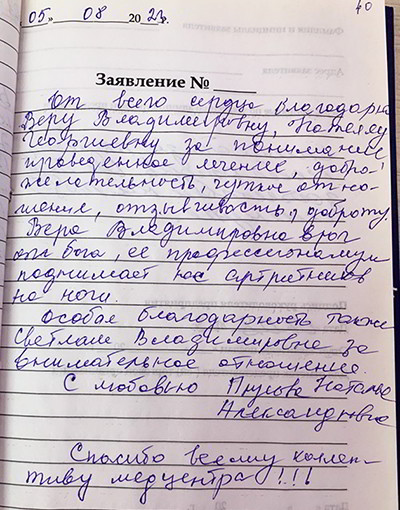 40
«05» 08 2023г.
Заявление №
От всего сердца благодарю
Веру Владимировну, Наталью
Георгиевну за понимание
проведенное лечение, добро-
желательность, чуткое отно-
шение, отзывчивость, доброту.
Вера Владимировна врач
от бога, ее профессионализм
поднимает нас артритников
на ноги.
Особая благодарность также
Светлане Владимировне за
внимательное отношение.
С любовью Наталья
Александровна
Спасибо всему коллек-
тиву медцентра!!!